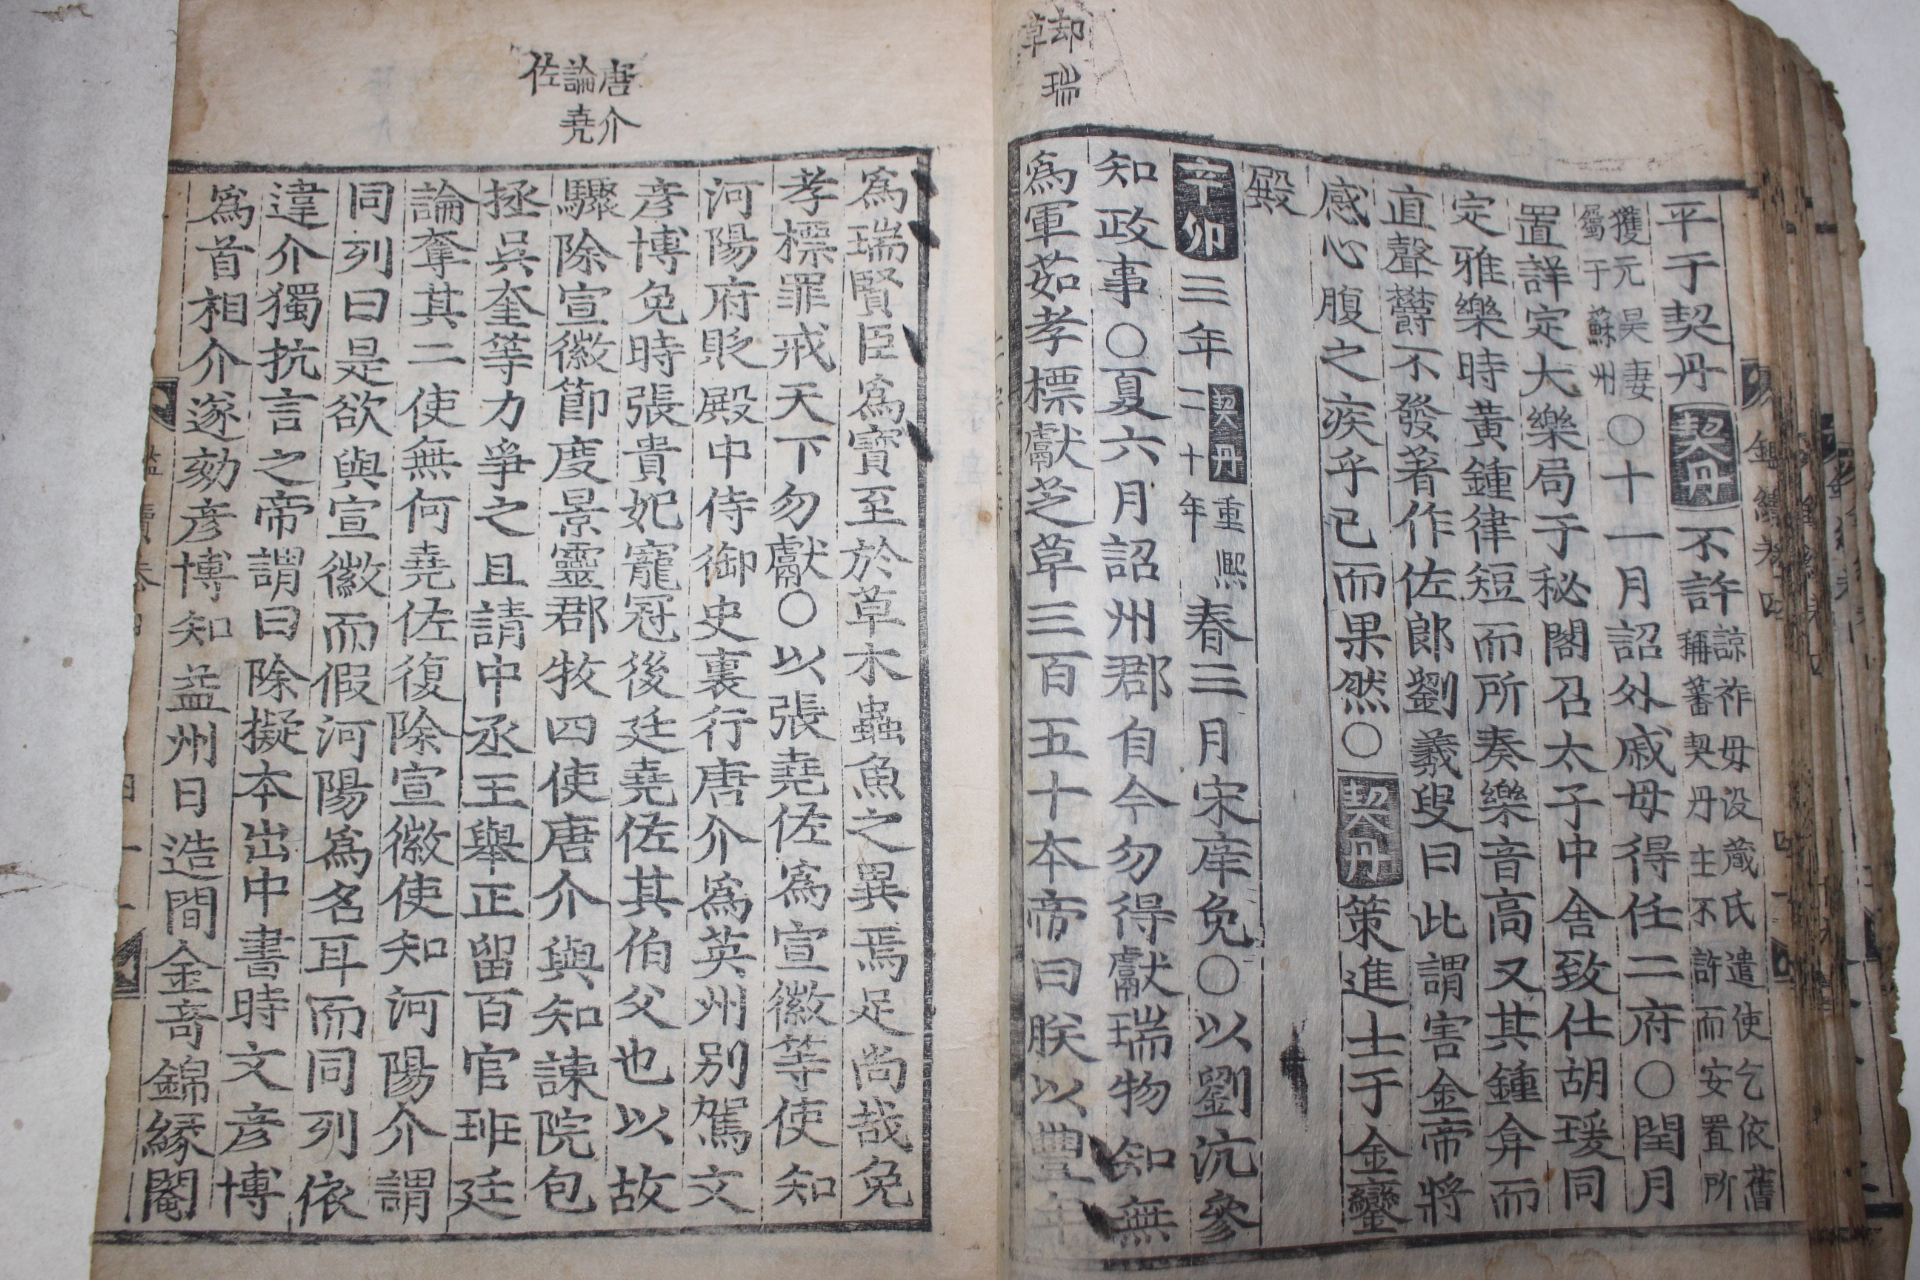 却瑞
草
平于契丹契丹不許諒祚毋没蔵氏遣使乞依舊稱蕃契丹主不許而安置所
獲元昊妻屬于蘇州○十一月詔外戚毋得任二府○閏月
置詳定大樂局于秘閣召太子中舍致仕胡瑗同
定雅樂時黃鍾律短而所奏樂音高又其鍾弇而
直聲鬱不發著作佐郎劉羲叟曰此謂害金帝將
感心腹之疾乎已而果然○契丹策進士于金鑾
殿
辛卯三年契丹重熙二十年春三月宋庠免○以劉沆參
知政事○夏六月詔州郡自今勿得獻瑞物知無
爲軍茹孝標獻芝草三百五十本帝曰朕以豐年
唐介
論堯
佐
爲瑞賢臣爲寶至於草木蟲魚之異焉足尚哉免
孝標罪戒天下勿獻○以張堯佐爲宣徽等使知
河陽府貶殿中侍御史裏行唐介爲英州别駕文
彦博免時張貴妃寵冠後廷堯佐其伯父也以故
驟除宣徽節度景靈郡牧四使唐介與知諫院包
拯吳奎等力爭之且請中丞王舉正留百官班廷
論奪其二使無何堯佐復除宣徽使知河陽介謂
同列曰是欲與宣徽而假河陽爲名耳而同列依
違介獨抗言之帝謂曰除擬本出中書時文彦博
爲首相介遂劾彦博知益州日造間金奇錦緣閹